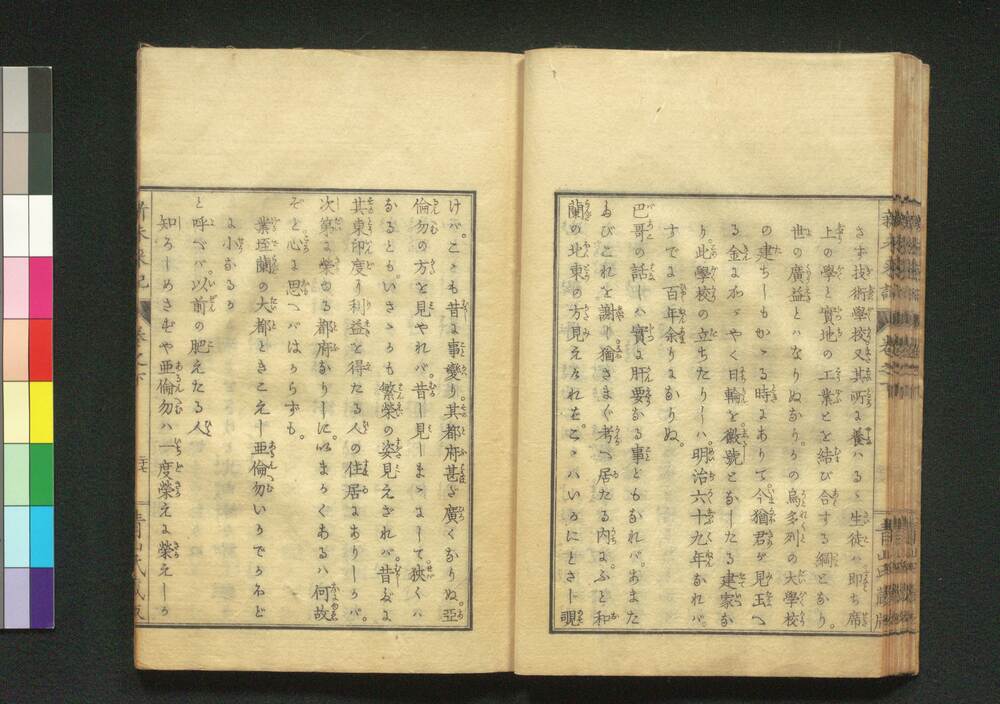 さず技術學校又其所に養ハるゝ生徒ハ即ち席
上の學と實地の工業とを結び合する綱となり。
世の廣益とハなりぬなり。かの烏多列の大學校
の建ちしもかゝる時にありて。今猶君が見玉へ
る金にかゞやく日輪を。徽號となしたる建家な
り。此學校の立ちたりしハ。明治六十九年なれバ。
すでに百年余りになりぬ。
巴哥の話しハ實に肝要なる事どもなれバ。あまた
ゝびこれを謝し。猶さまざま考へ居たる内に。ふと和
蘭の北東の方見えたれを。こゝハいかにとさし覗
けバ。こゝも昔に事變り。其都府甚ゞ廣くなりぬ。亞
倫勿の方を見やれバ。昔し見しまゝにして。狹くハ
なるとも。いさゝかも繁榮の姿見えざれバ。昔ながに
其東印度より利益を得たる人の住居にありしかバ。
次第に榮ゆる都府なりしに。以まかくあるハ何故
ぞと心に思へバはからずも。
業垤蘭の大都ときこえし亜倫勿いかでかほど
に小なるか
と呼べバ。以前の肥えたる人
知ろしめさずや亜倫勿ハ一度榮えに榮えしか
新未來記
卷之下
青山氏藏版